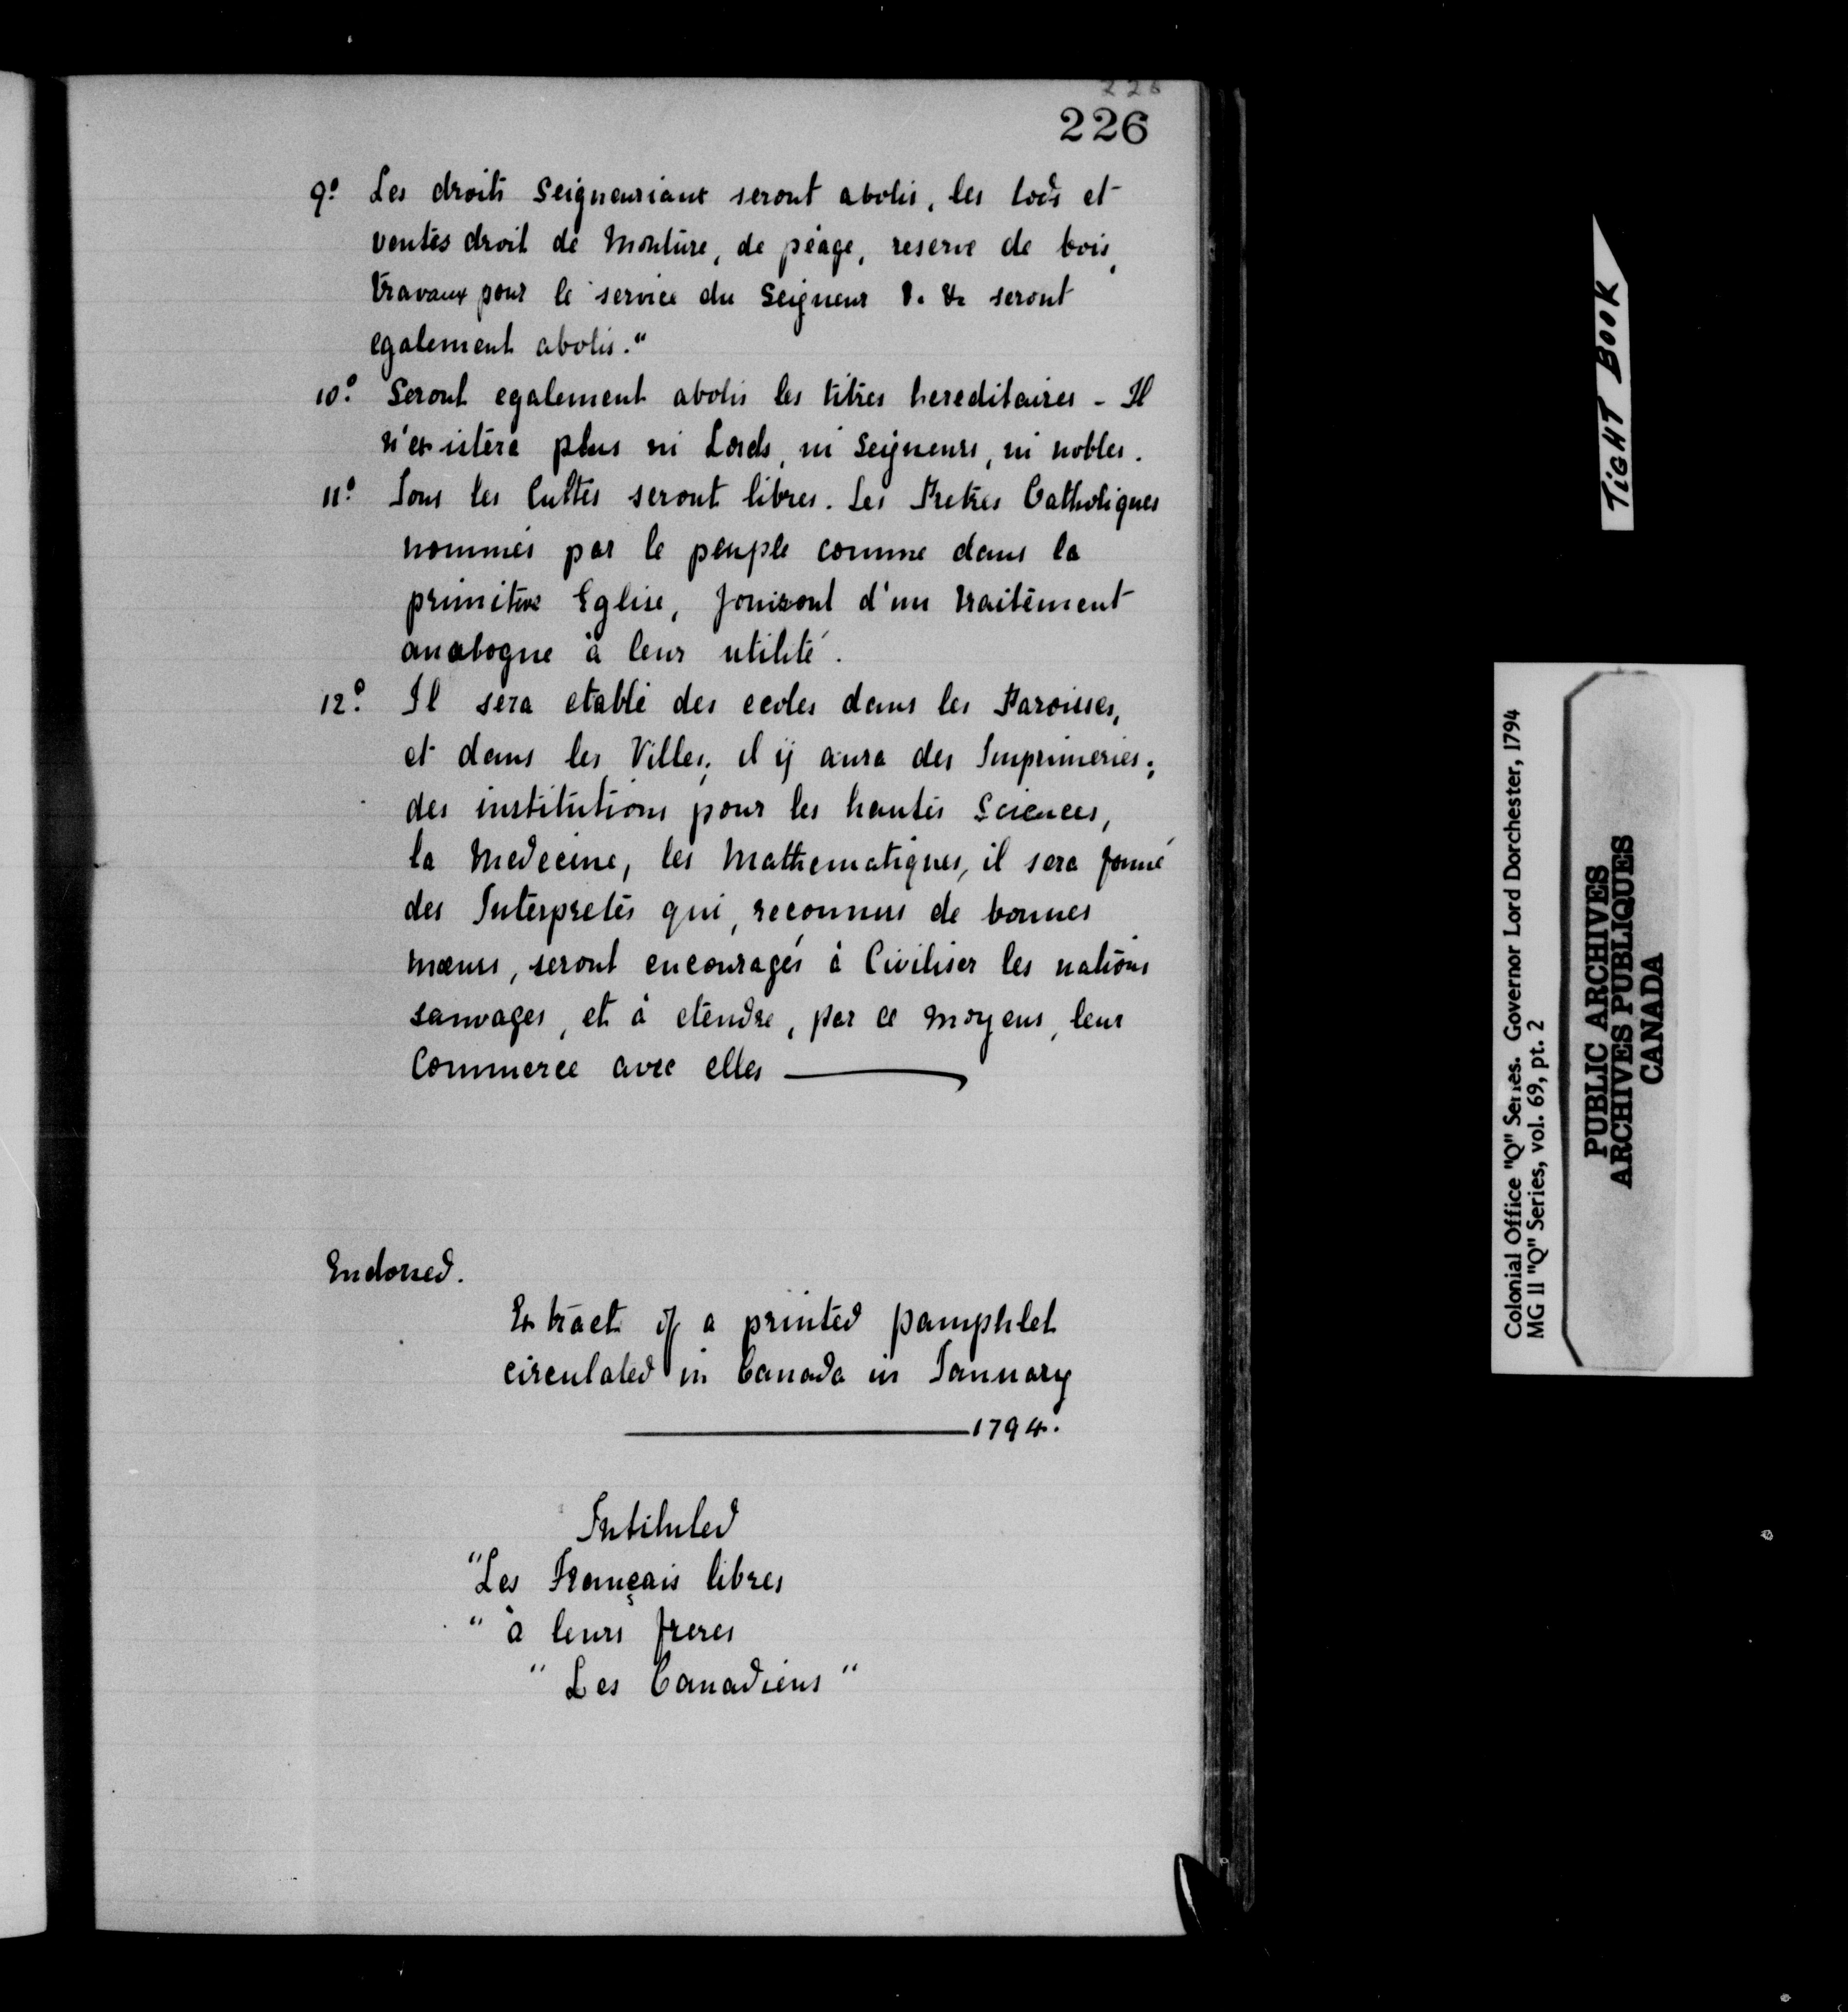 226
226
9.º Les droits Seigneuriaux seront abolis, les lods et
ventes droit de Mouture, de péage, reserve de bois,
travaux pour le service du Seigneur &. &c seront
egalement abolis."
10.º Seront egalement abolis les titres hereditaires - Il
n'existera plus ni Lords, ni Seigneurs, ni nobles.
11.º Tous les Cultes seront libres. Les Pretres Catholiques
nommés par le peuple comme dans la
primitive Eglise, jouiront d'un traitement
analogue à leur utilité.
12.º Il sera etabli des ecoles dans les Paroisses,
et dans les Villes; il y aura des Imprimeries;
des institutions pour les hautes Sciences,
la Medecine, les Mathematiques, il sera formé
des Interpretes qui, reconnus de bonnes
mœurs, seront encouragés à Civiliser les nations
sauvages, et à etendre, par ce moyens, leur
Commerce avec elles
Endorsed.
Extract of a printed pamphlet
circulated in Canada in January
1794.
Intituled
"Les Français libres
" à leurs freres
" Les Canadiens "
TIGHT BOOK
Colonial Office "Q" Series. Governor Lord Dorchester, 1794
MG 11 "Q" Series, vol. 69, pt. 2
PUBLIC ARCHIVES
ARCHIVES PUBLIQUES
CANADA